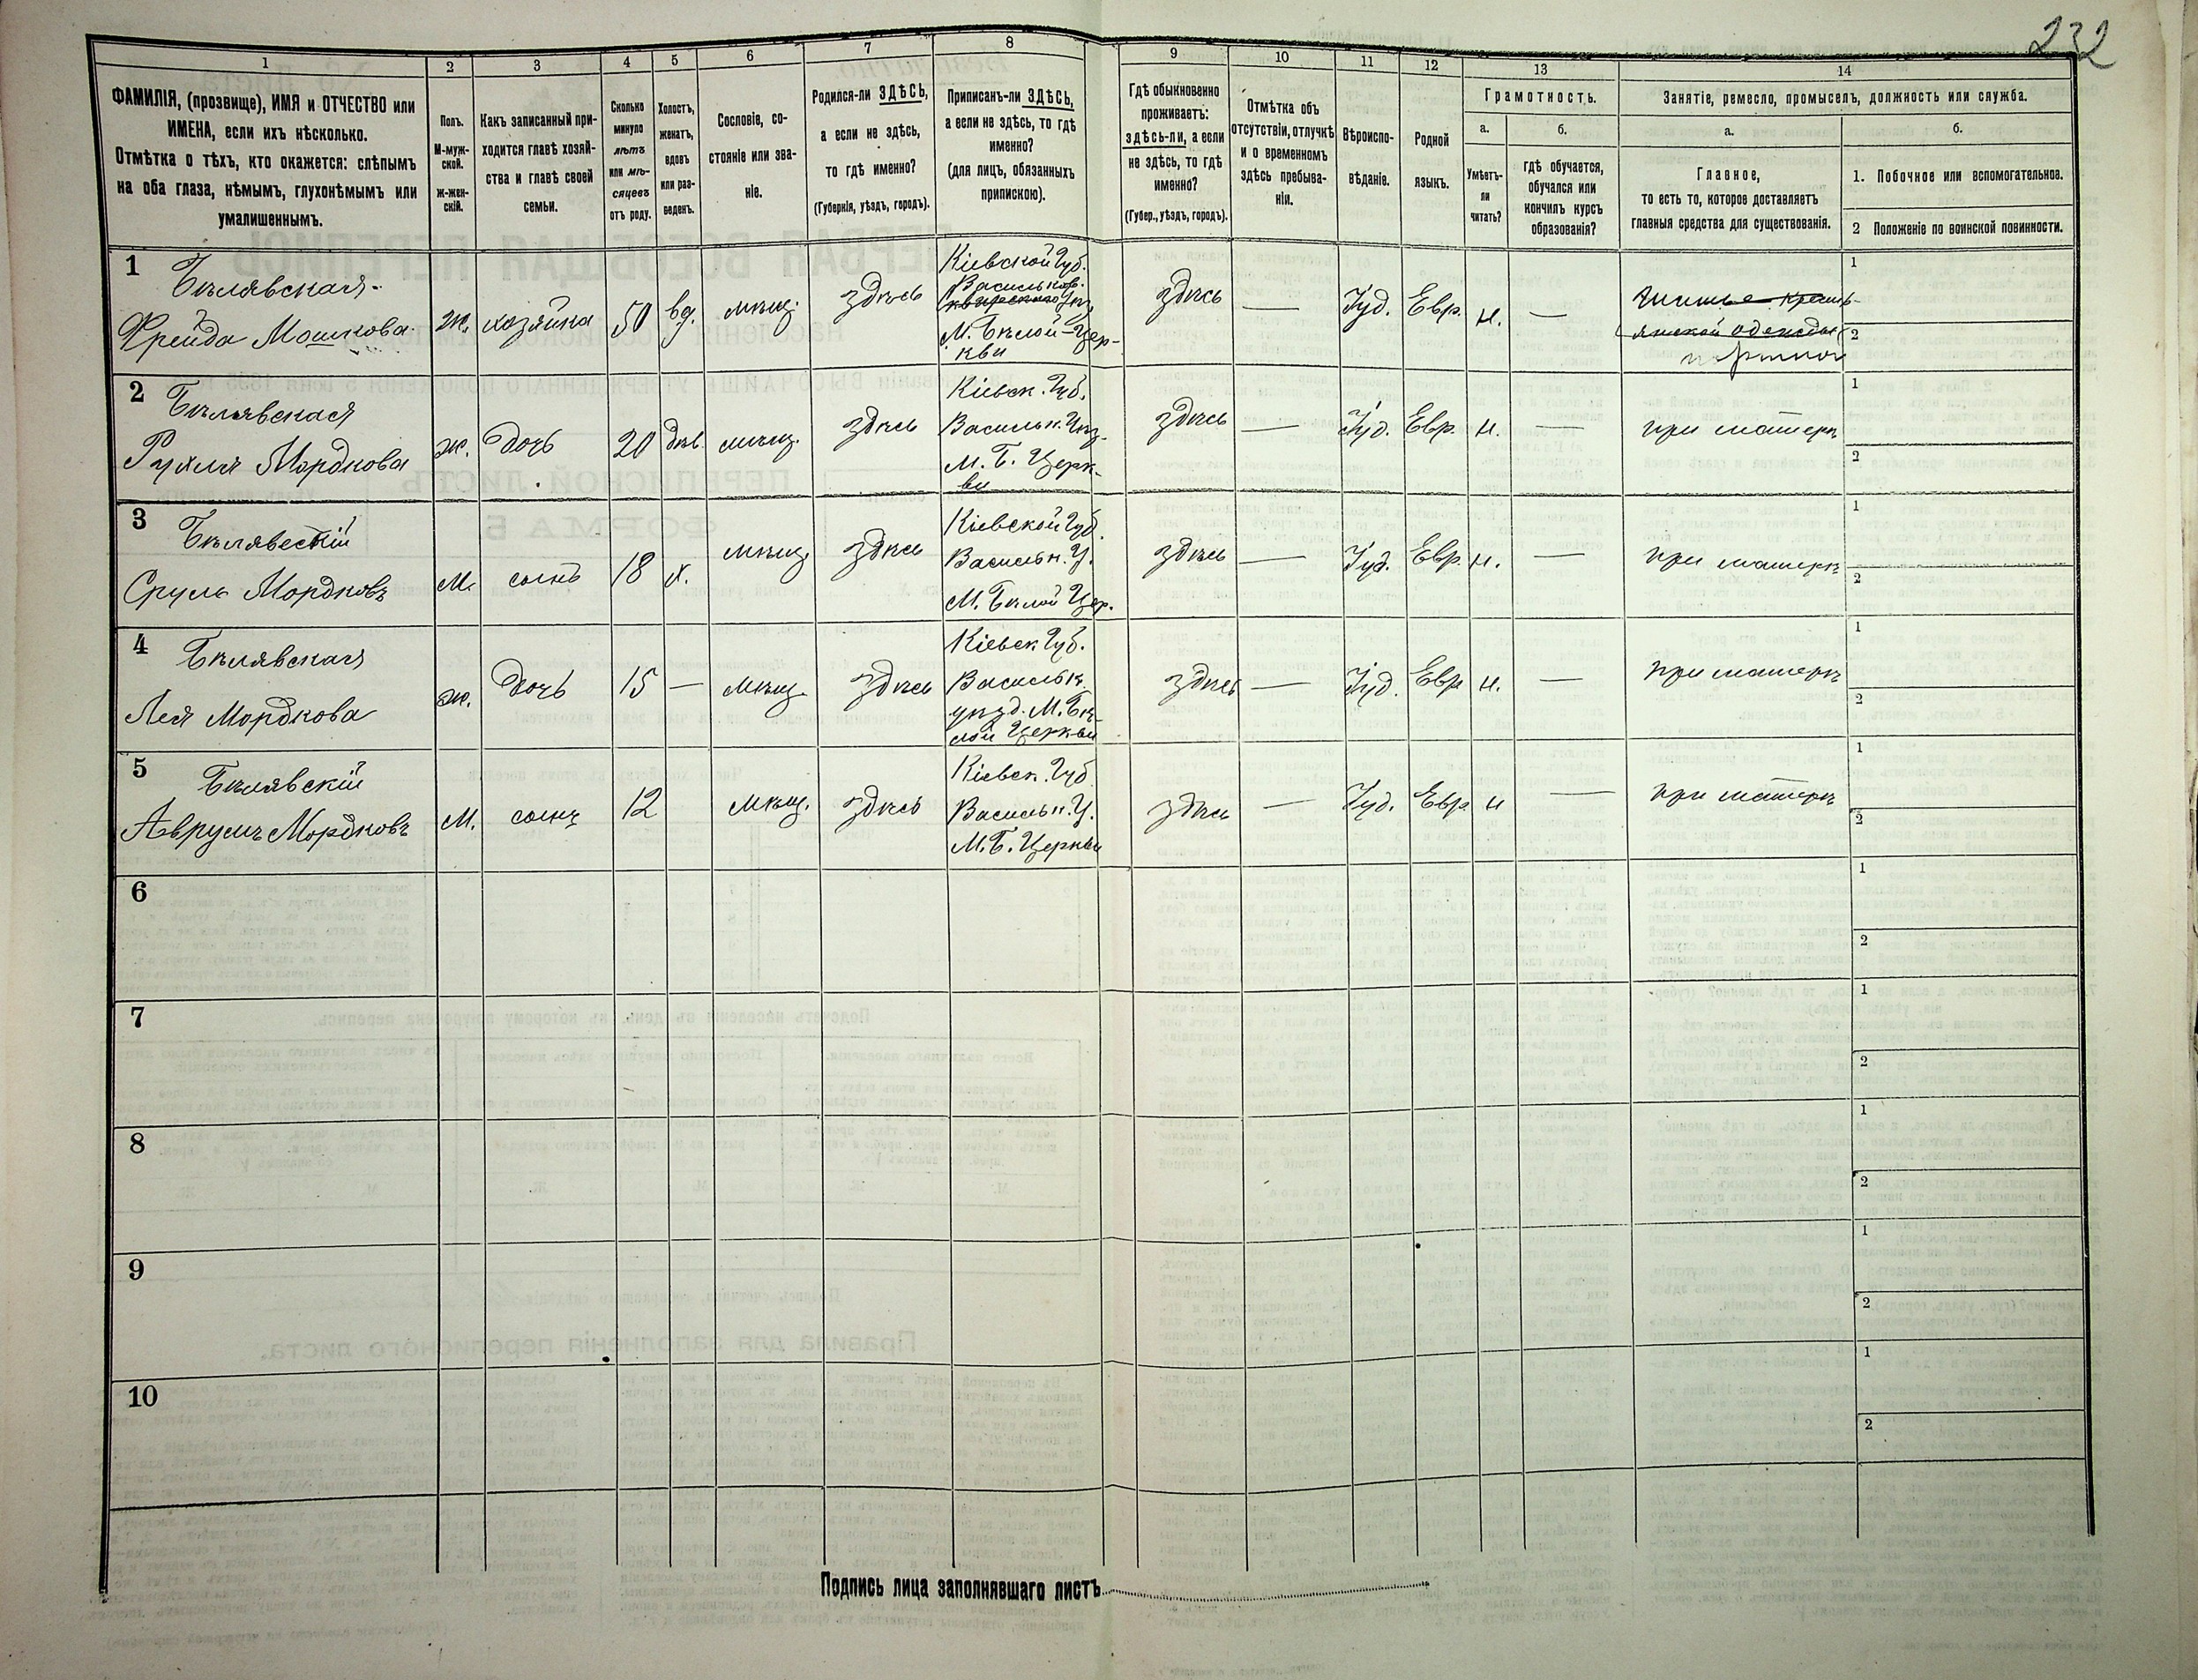 232
1
2
3
4
5
6
7
8
9
10
11
12
13
14
ФАМИЛІЯ, (прозвище), ИМЯ и ОТЧЕСТВО или
ИМЕНА, если ихъ нѣсколько.
Отмѣтка о тѣхъ, кто окажется: слѣпымъ
на оба глаза, нѣмымъ, глухонѣмымъ или
умалишеннымъ.
Полъ.
М-муж-
ской.
Ж-жен-
скій.
Какъ записанный при-
ходится главѣ хозяй-
ства и главѣ своей
семьи.
Сколько
минуло
лѣтъ
или мѣ-
сяцевъ
отъ роду.
Холостъ,
женатъ,
вдовъ
или раз-
веденъ.
Сословіе, со-
стояніе или зва-
ніе.
Родился-ли ЗДѢСЬ,
а если не здѣсь,
то гдѣ именно?
(Губернія, уѣздъ, городъ).
Приписанъ-ли ЗДѢСЬ,
а если не здѣсь, то гдѣ
именно?
(для лицъ, обязанныхъ
припискою).
Гдѣ обыкновенно
проживаетъ:
здѣсь-ли, а если
не здѣсь, то гдѣ
именно?
(Губер., уѣздъ, городъ).
Отмѣтка объ
отсутствіи, отлучкѣ
и о временномъ
здѣсь пребыва-
ніи.
Вѣроиспо-
вѣданіе.
Родной
языкъ.
Грамотность.
а.
Умѣетъ-
ли
читать?
б.
гдѣ обучается,
обучался или
кончилъ курсъ
образованія?
Занятіе, ремесло, промыселъ, должность или служба.
а.
Главное,
то есть то, которое доставляетъ
главныя средства для существованія.
б.
1. Побочное или вспомогательное.
2 Положеніе по воинской повинности.
1
Бѣлявская
Фрейда Мошкова
ж.
хозяйка
50
вд.
мѣщ.
здѣсь
Кіевской Губ.
Васильков.
М. Бѣлой-Цер-
кви
здѣсь
—
Іуд.
Евр.
н.
—
янской одежды
1
2
2
Бѣлявская
Рухля Мордкова
ж.
дочь
20
дѣв.
мѣщ.
здѣсь
Кіевск. Губ.
Васильк. Уѣз.
М. Б. Церк-
ви
здѣсь
—
Іуд.
Евр.
н.
—
при матери
1
2
3
Бѣлявскій
Сруль Мордковъ
М.
сынъ
18
х.
мѣщ.
здѣсь
Кіевской Губ.
Васильк. У.
М. Бѣлой Цер.
здѣсь
—
Іуд.
Евр.
н.
—
при матери
1
2
4
Бѣлявская
Лея Мордкова
ж.
дочь
15
—
мѣщ.
здѣсь
Кіевск Губ.
Васильк.
уѣзд. М. Бѣ-
лой Церкви
здѣсь
—
Іуд.
Евр
н.
—
при матери
1
2
5
Бѣлявскій
Аврумъ Мордковъ
М.
сынъ
12
мѣщ.
здѣсь
Кіевск. Губ
Васильк. У.
М. Б. Церкви
здѣсь
—
Іуд.
Евр.
н
—
при матери
1
2
6
1
2
7
1
2
8
1
2
9
1
2
10
1
2
Подпись лица заполнявшаго листъ